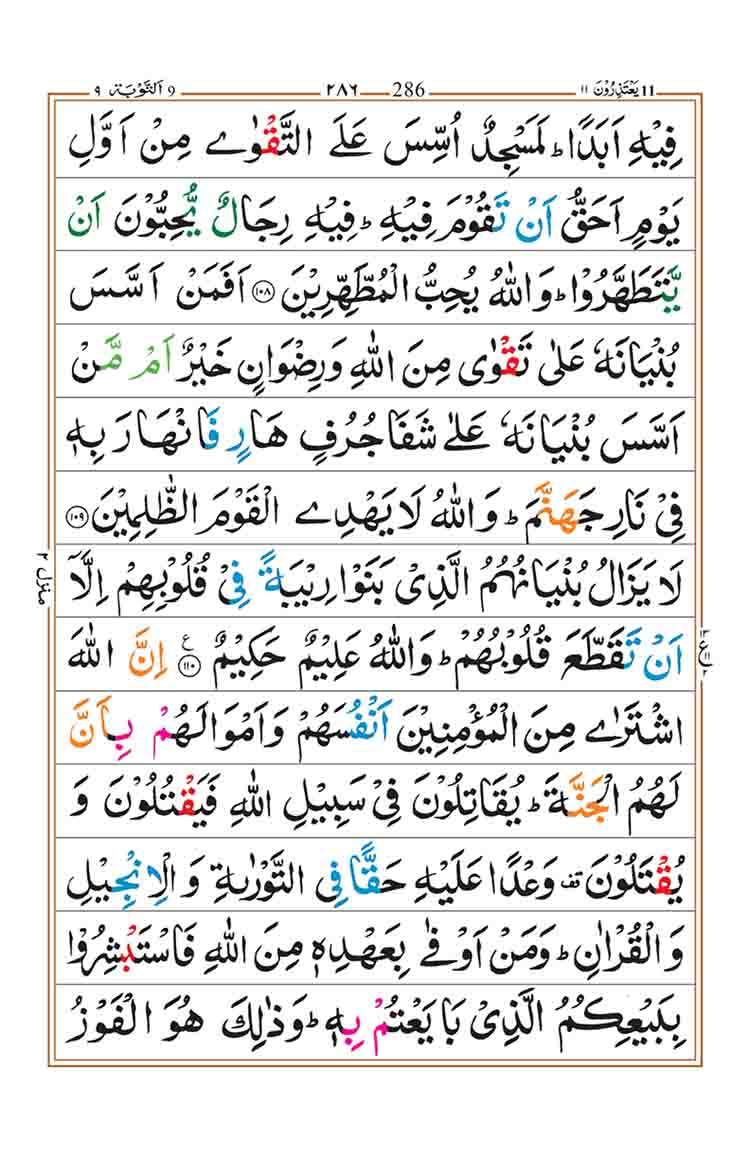 11 یَعْتَذِرُوْنَ ۱۱ 286 ۲۸۶ 9 اَلتَّوْبَة ۹
فِیْهِ اَبَدًاؕ لَمَسْجِدٌ اُسِّسَ عَلَی التَّقْوٰی مِنْ اَوَّلِ
یَوْمٍ اَحَقُّ اَنْ تَقُوْمَ فِیْهِؕ فِیْهِ رِجَالٌ یُّحِبُّوْنَ اَنْ
یَّتَطَهَّرُوْاؕ وَاللّٰهُ یُحِبُّ الْمُطَّهِّرِیْنَ ۝۱۰۸ اَفَمَنْ اَسَّسَ
بُنْیَانَهٗ عَلٰی تَقْوٰی مِنَ اللّٰهِ وَرِضْوَانٍ خَیْرٌ اَمْ مَّنْ
اَسَّسَ بُنْیَانَهٗ عَلٰی شَفَا جُرُفٍ هَارٍ فَانْهَارَ بِهٖ
فِیْ نَارِ جَهَنَّمَؕ وَاللّٰهُ لَا یَهْدِی الْقَوْمَ الظّٰلِمِیْنَ ۝۱۰۹
لَا یَزَالُ بُنْیَانُهُمُ الَّذِیْ بَنَوْا رِیْبَةً فِیْ قُلُوْبِهِمْ اِلَّاۤ
اَنْ تَقَطَّعَ قُلُوْبُهُمْؕ وَاللّٰهُ عَلِیْمٌ حَكِیْمٌ ۝۱۱۰ ع اِنَّ اللّٰهَ
اشْتَرٰی مِنَ الْمُؤْمِنِیْنَ اَنْفُسَهُمْ وَاَمْوَالَهُمْ بِاَنَّ
لَهُمُ الْجَنَّةَؕ یُقَاتِلُوْنَ فِیْ سَبِیْلِ اللّٰهِ فَیَقْتُلُوْنَ وَ
یُقْتَلُوْنَ قف وَعْدًا عَلَیْهِ حَقًّا فِی التَّوْرٰىةِ وَالْاِنْجِیْلِ
وَالْقُرْاٰنِؕ وَمَنْ اَوْفٰی بِعَهْدِهٖ مِنَ اللّٰهِ فَاسْتَبْشِرُوْا
بِبَیْعِكُمُ الَّذِیْ بَایَعْتُمْ بِهٖؕ وَذٰلِكَ هُوَ الْفَوْزُ
منزل ۲